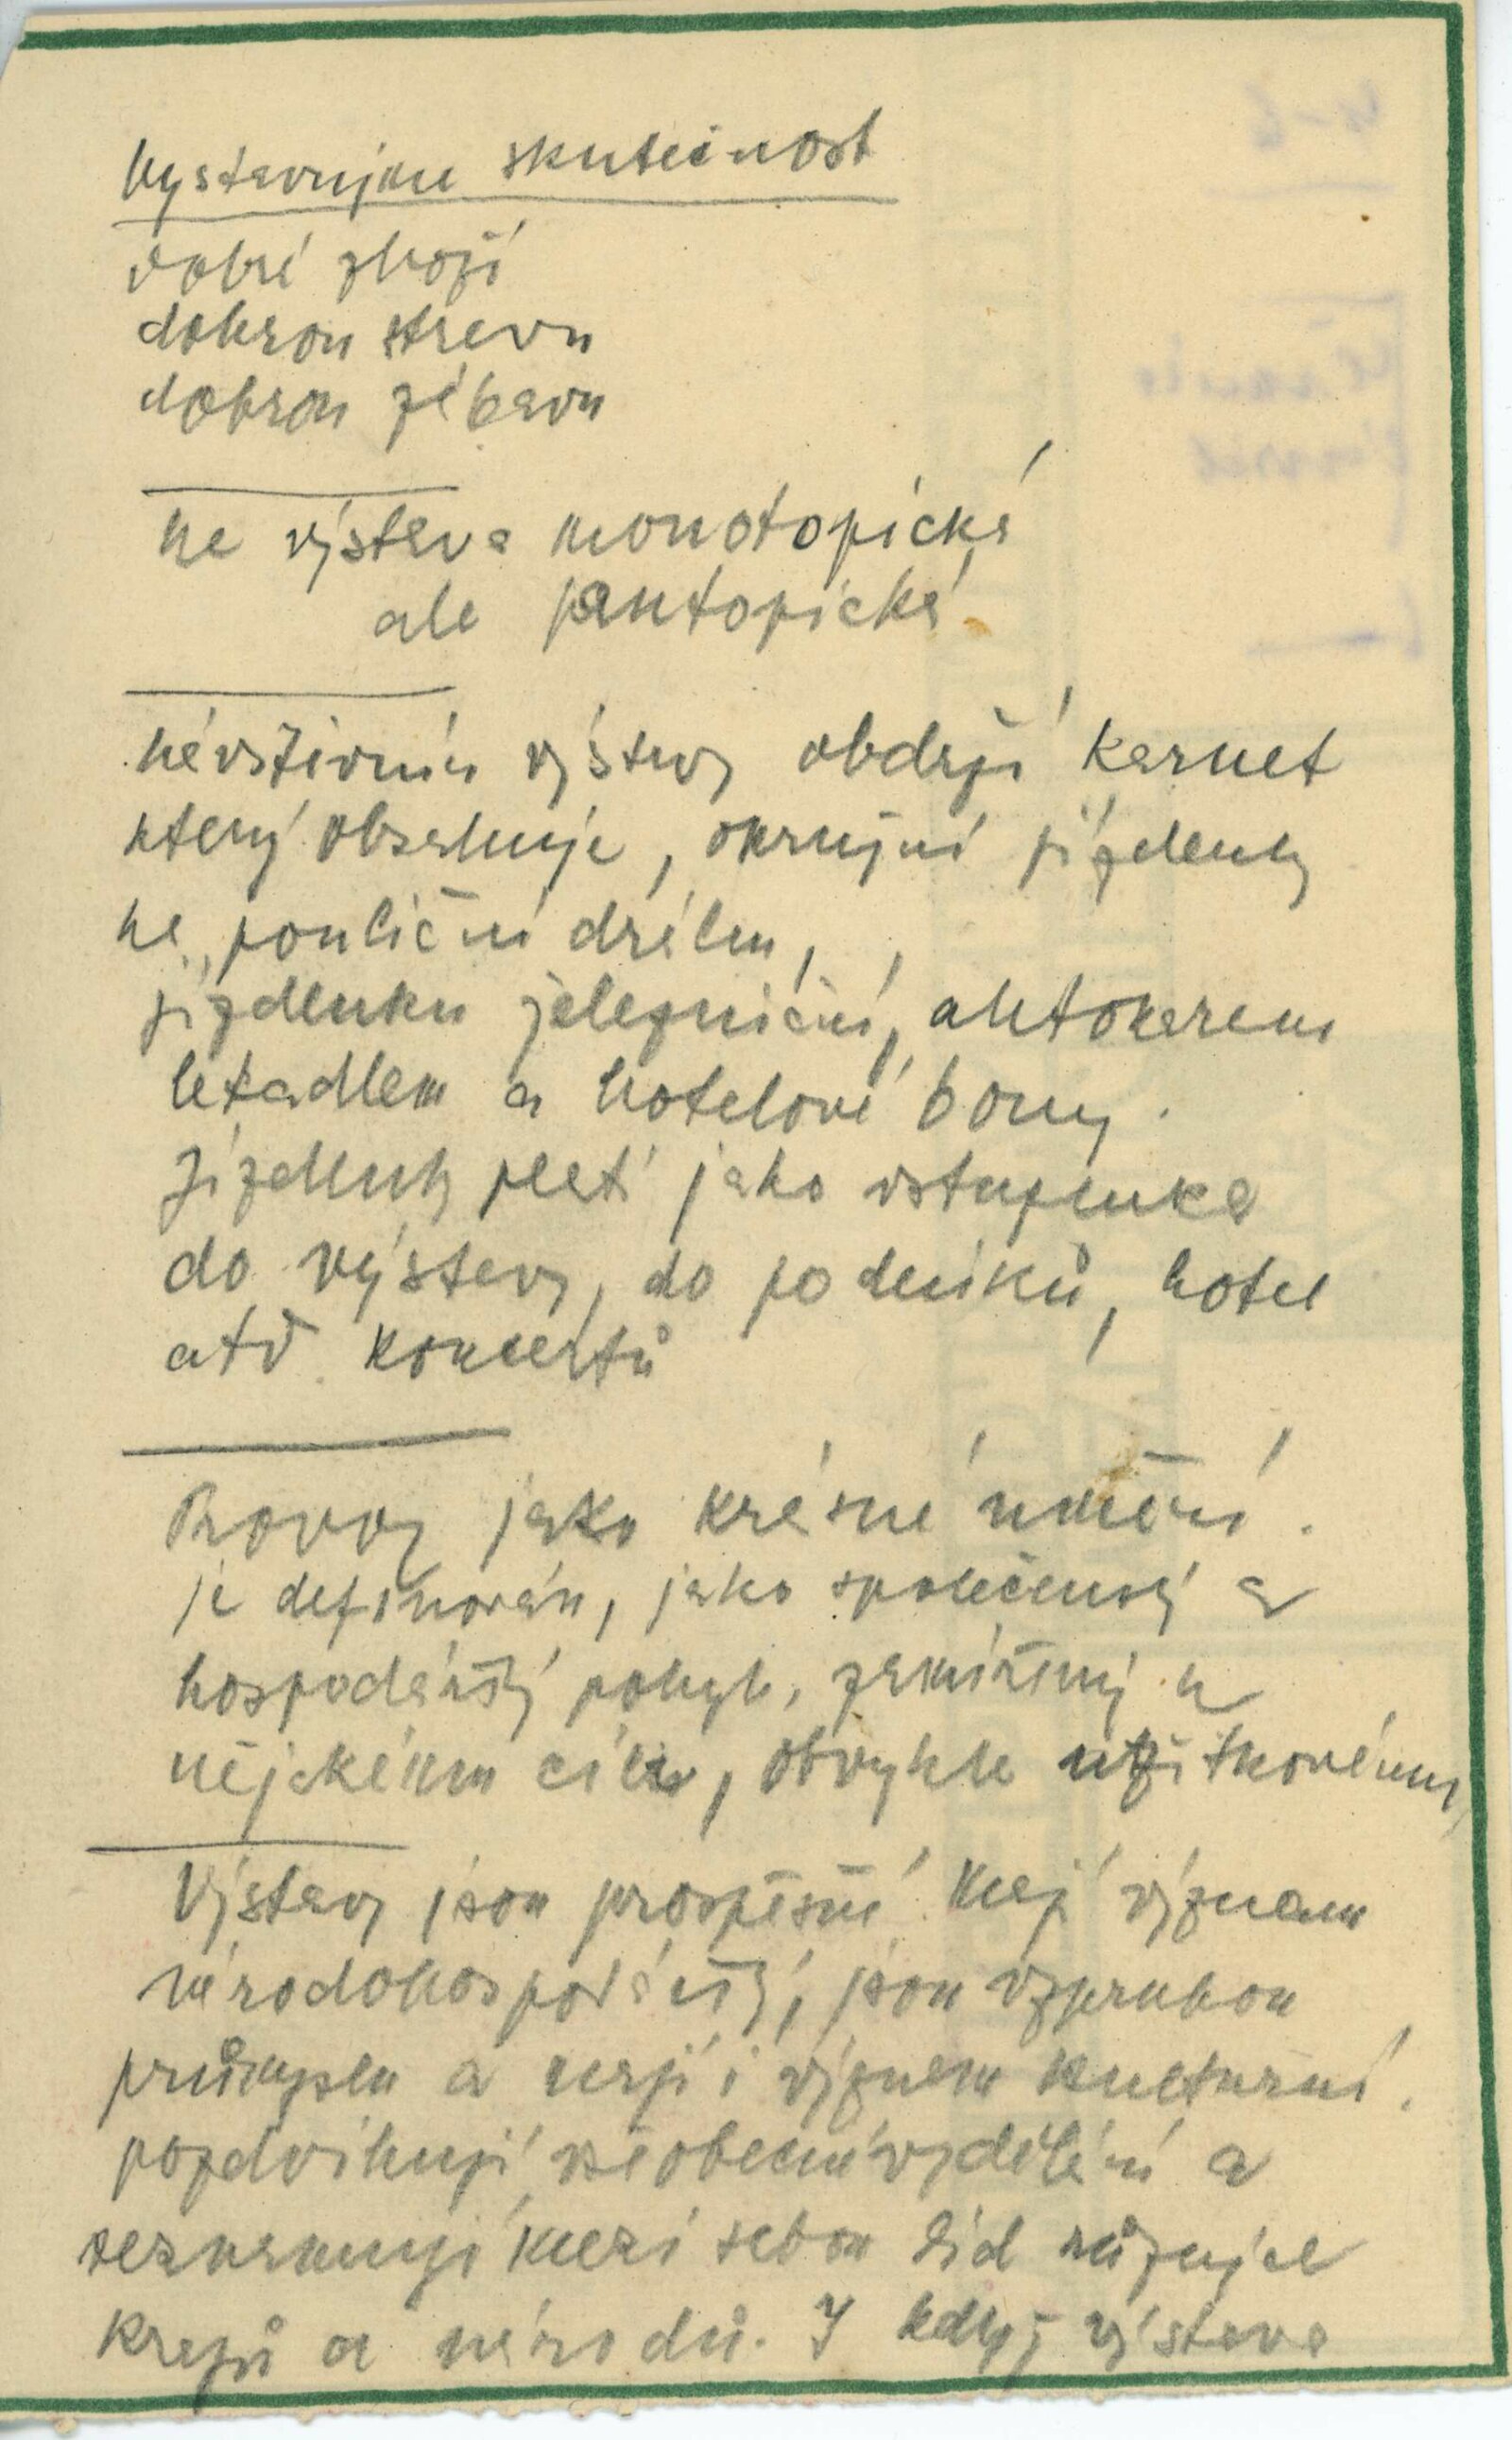 Vystavujme skutečnost
dobré zboží
dobrou stravu
dobrou zábavu
ne výstava monotopická
ale pantopická
návštěvník výstavy obdrží karnet
který obsahuje, okružní jízdenky
na pouliční dráhu,
jízdenku železniční, autokarem
letadlem a hotelové bony.
Jízdenky platí jako vstupenka
do výstavy, do podniků, hotel
atd. koncertů
Provoz jako krásné umění.
je definován, jako společenský a
hospodářský pohyb, zamířený k
nějakému cíli, obvykle užitkovému,
Výstavy jsou prospěšné. Mají význam
národohospodářský, jsou vzpruhou
průmyslu a mají i význam kulturní.
pozdvihují všeobecné vzdělání a
seznamují mezi sebou lid různých
krajů a národů. I když výstava